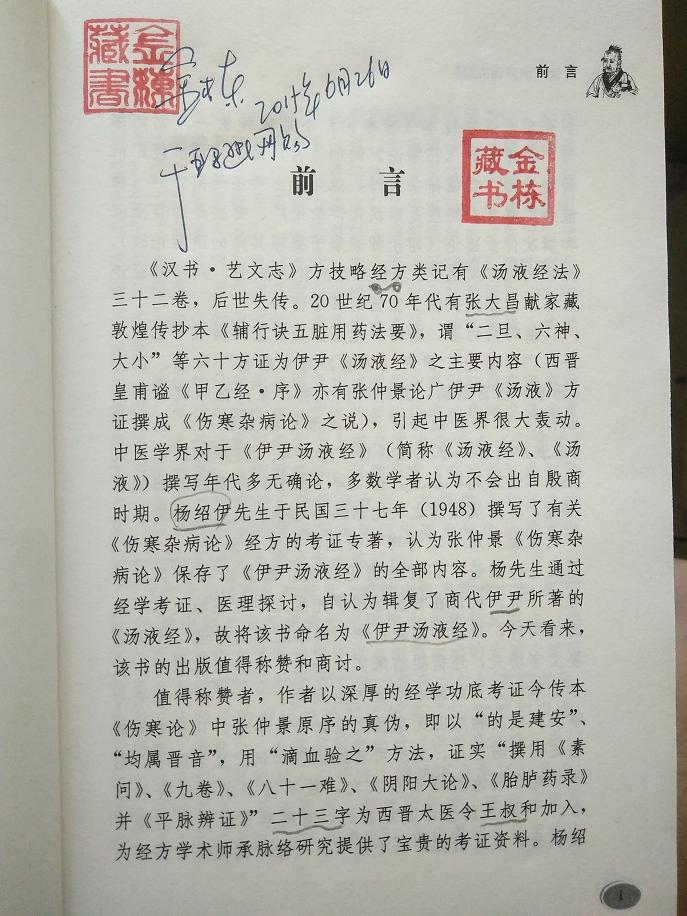 金栋
藏書
金栋
2019年6月26日
前言
前 言
金栋
藏书
《汉书·艺文志》方技略经方类记有《汤液经法》
三十二卷，后世失传。20世纪70年代有张大昌献家藏
敦煌传抄本《辅行诀五脏用药法要》，谓“二旦、六神、
大小”等六十方证为伊尹《汤液经》之主要内容（西晋
皇甫谧《甲乙经·序》亦有张仲景论广伊尹《汤液》方
证撰成《伤寒杂病论》之说），引起中医界很大轰动。
中医学界对于《伊尹汤液经》（简称《汤液经》、《汤
液》）撰写年代多无确论，多数学者认为不会出自殷商
时期。杨绍伊先生于民国三十七年（1948）撰写了有关
《伤寒杂病论》经方的考证专著，认为张仲景《伤寒杂
病论》保存了《伊尹汤液经》的全部内容。杨先生通过
经学考证、医理探讨，自认为辑复了商代伊尹所著的
《汤液经》，故将该书命名为《伊尹汤液经》。今天看来，
该书的出版值得称赞和商讨。
值得称赞者，作者以深厚的经学功底考证今传本
《伤寒论》中张仲景原序的真伪，即以“的是建安”、
“均属晋音”，用“滴血验之”方法，证实“撰用《素
问》、《九卷》、《八十一难》、《阴阳大论》、《胎胪药录》
并《平脉辨证》”二十三字为西晋太医令王叔和加入，
为经方学术师承脉络研究提供了宝贵的考证资料。杨绍
1